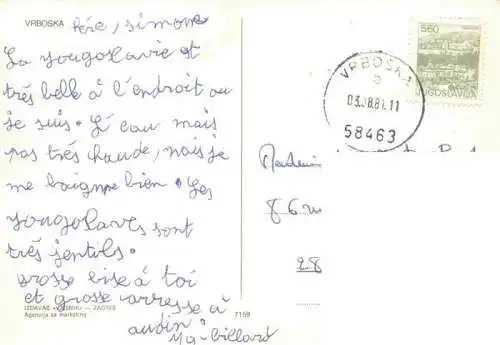 VRBOSKA
père, simone
La yougoslavie est
très belle à l'endroit ou
je suis. L'eau mais
pas très chaude, mais je
me baigne bien. Les
yougoslaves sont
très jentils.
grosse bise à toi
et grosse à
IZDAVAČ «VJESNIK» — ZAGREB
Agencija za marketing
7159
VRBOSKA
b
03.8.81.11
58463
5.60
JUGOSLAVIJA
86
28